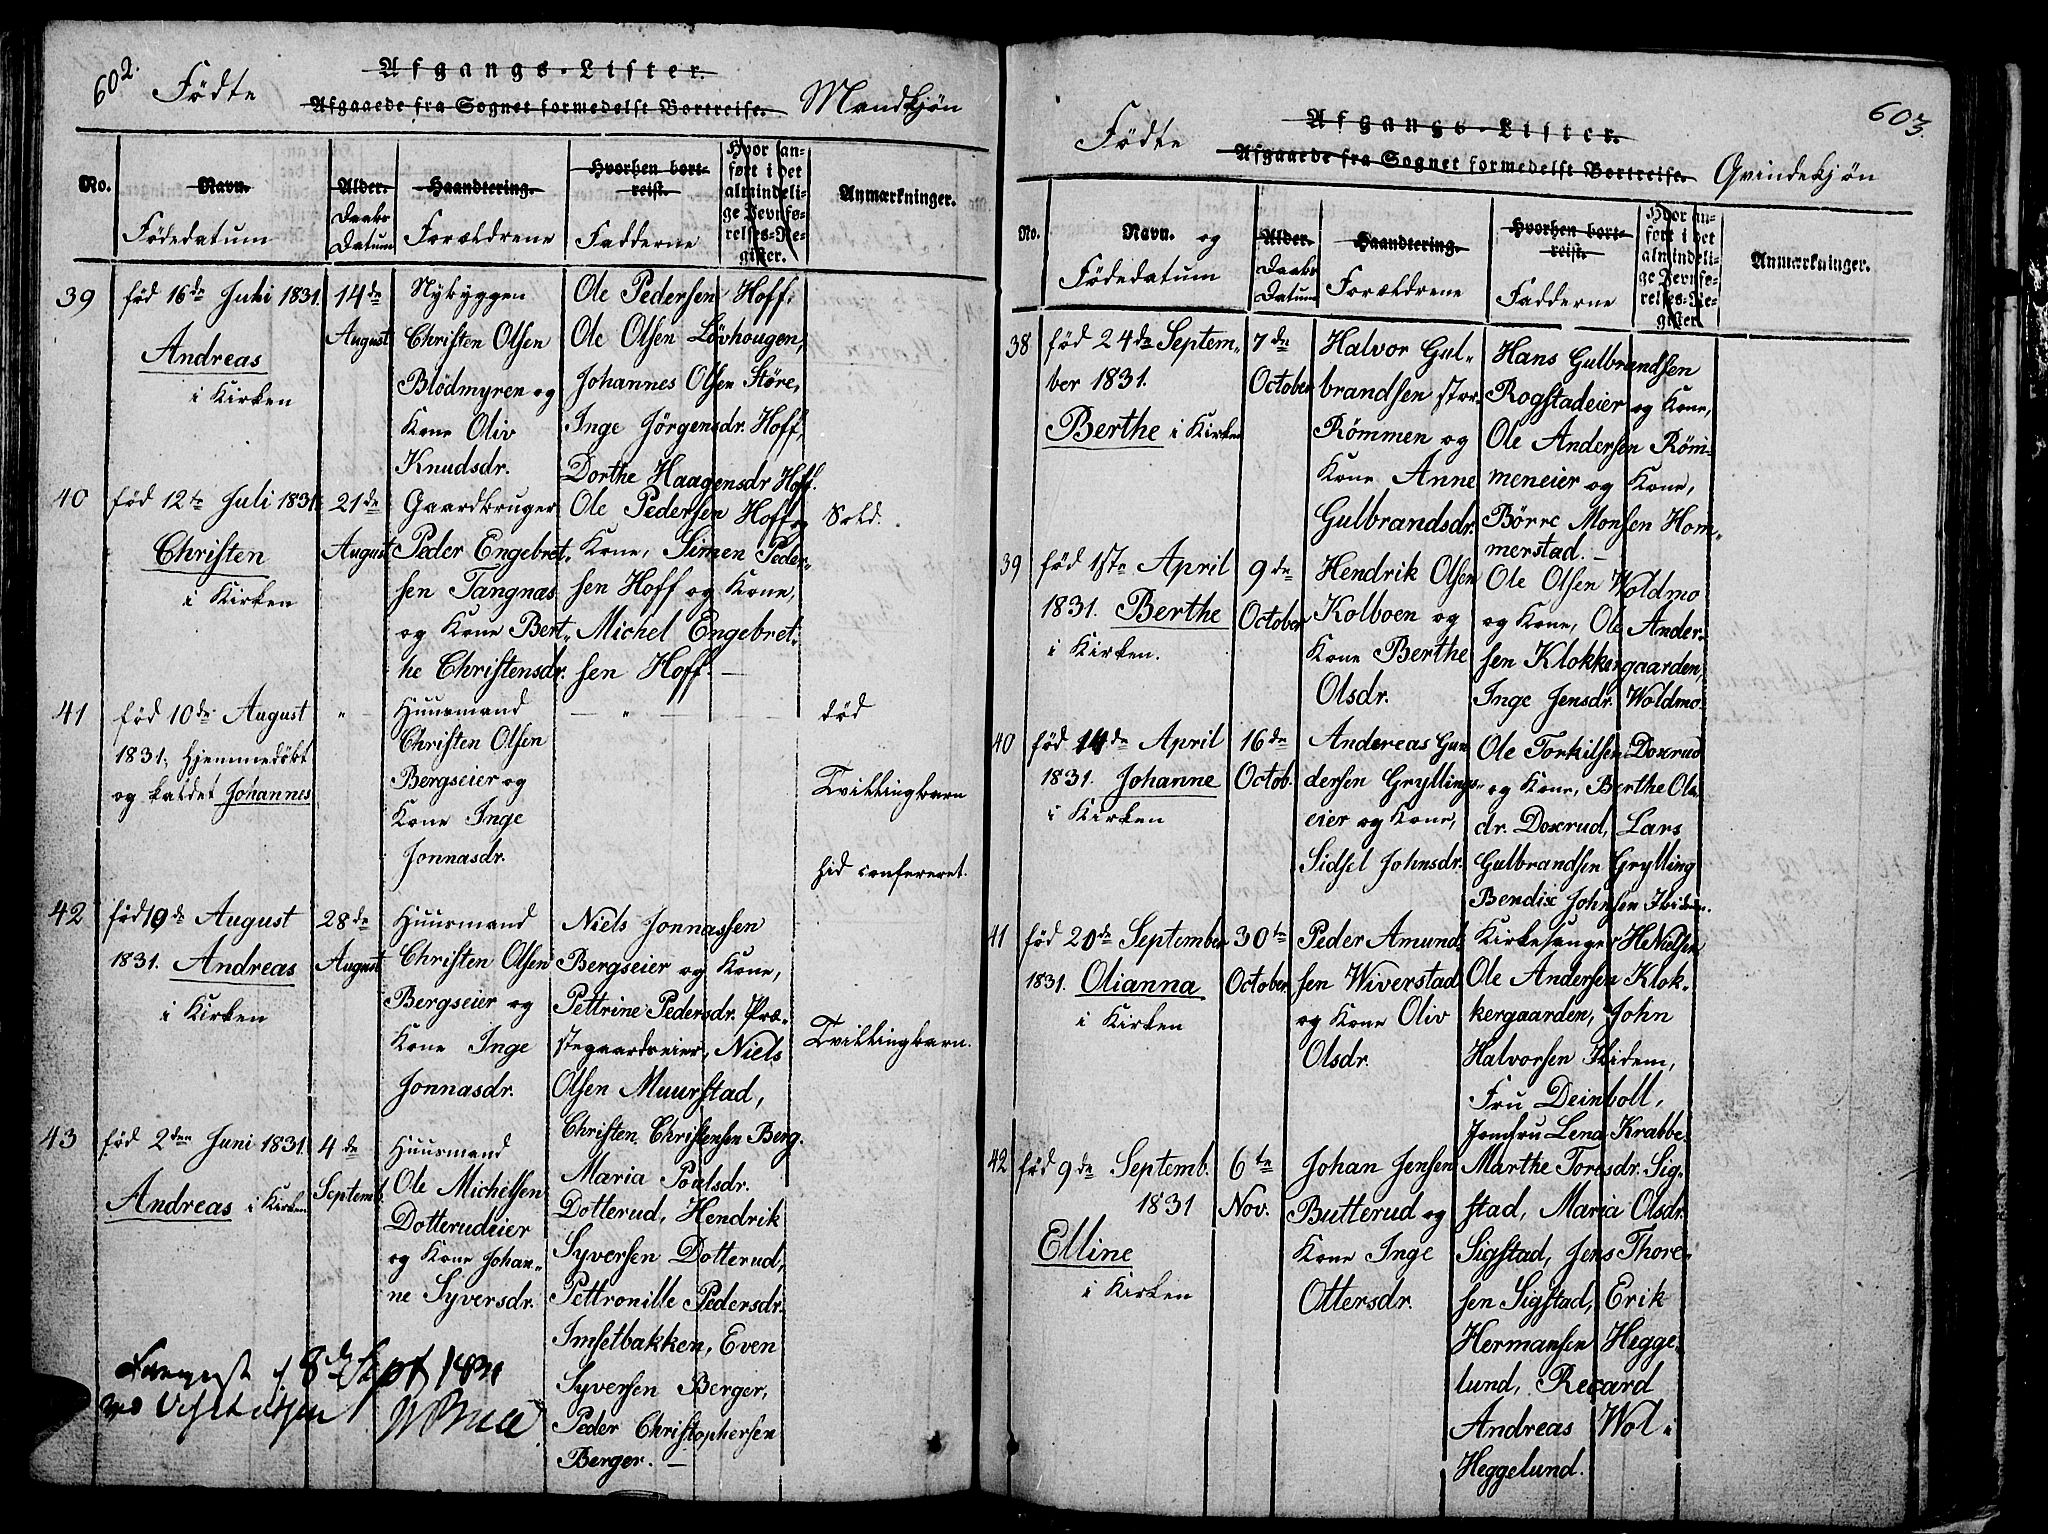 602.
Födte
Afgangs-Lister.
Afgaaede fra Sognet formedelst Bortreise.
Mandkjøn
No.
Navn.
Födedatum
Alder.
Daabs
Datum
Haandtering.
Forældrene
Hvorhen bort-
reist.
Fadderne
Hvor an-
ført i det
almindeli-
ge Jevnfø-
relses-Re-
gister.
Anmærkninger.
39
föd 16de Juli 1831.
Andreas
i Kirken
14de
August
Nybyggen
Christen Olsen
Blödmyren og
Kone Oliv
Knudsdr.
Ole Pedersen Hoff,
Ole Olsen Lövhougen,
Johannes Olsen Störe,
Inge Jörgensdr. Hoff,
Dorthe Haagensdr Hoff.
40
föd 12te Juli 1831.
Christen
i Kirken
21de
August
Gaardbruger
Peder Engebret-
sen Tangnæs
og Kone Bert-
he Christensdr.
Ole Pedersen Hoff og
Kone, Simen Peder-
sen Hoff og Kone,
Michel Engebret-
sen Hoff. —
Sold.
41
föd 10de August
1831, Hjemmedöbt
og kaldet Johannes
"
Huusmand
Christen Olsen
Bergseier og
Kone Inge
Jonnasdr.
— " — — —
död
Tvillingbarn
hid confereret.
42
föd 10de August
1831. Andreas
i Kirken
28de
August
Huusmand
Christen Olsen
Bergseier og
Kone Inge
Jonnasdr.
Niels Jonnassen
Bergseier og Kone,
Pettrine Pedersdr. Præ-
stegaardseier, Niels
Olsen Muurstad,
Christen Christensen Berg.
Tvillingbarn.
43
föd 2den Juni 1831.
Andreas i Kirken
4de
Septemb.
Huusmand
Ole Michelsen
Dotterudeier
og Kone Johan-
ne Syversdr.
Maria Poulsdr.
Dotterud, Hendrik
Syversen Dotterud,
Pettronille Pedersdr.
Imsetbakken, Even
Syversen Berger,
Peder Christophersen
Berger. —
8de Sept 1831
603.
Födte
Afgangs-Lister.
Afgaaede fra Sognet formedelst Bortreise.
Qvindekjön
No.
Navn. og
Födedatum
Alder.
Daabs
Datum
Haandtering.
Forældrene
Hvorhen bort-
reist.
Fadderne
Hvor an-
ført i det
almindeli-
ge Jevnfø-
relses-Re-
gister.
Anmærkninger.
38
föd 24de Septem-
ber 1831.
Berthe i Kirken
7de
October
Halvor Gul-
brandsen stor-
Römmen og
Kone Anne
Gulbrandsdr.
Hans Gulbrandsen
Rogstadeier og Kone,
Ole Andersen Röm-
meneier og Kone,
Börre Monsen Hom-
merstad. —
39
föd 1ste April
1831. Berthe
i Kirken.
9de
October
Hendrik Olsen
Kolboen og
Kone Berthe
Olsdr.
Ole Olsen Woldmo
og Kone, Ole Ander-
sen Klokkergaarden,
Inge Jensdr. Woldmo.
40
föd 14de April
1831. Johanne
i Kirken
16de
Octob.
Andereas Gun
dersen Gryllings-
eier og Kone,
Sidsel Johnsdr.
Ole Torkilsen Doxrud
og Kone, Berthe Ols-
dr. Doxrud, Lars
Gulbrandsen Grylling
Bendix Johnsen Ibidem.
41
föd 20de September
1831. Olianna
i Kirken
30te
October
Peder Amund-
sen Wiverstad
og Kone Oliv
Olsdr.
Kirkesanger H Nielsen
Ole Andersen Klok-
kergaarden, John
Halvorsen Ibidem,
Fru Deinboll,
Jomfru Lena Krabbe.
42
föd 9de Septemb.
1831
Elline
i Kirken
6te
Nov.
Johan Jensen
Butterud og
Kone Inge
Ottersdr.
Marthe Toresdr. Sig-
stad, Maria Olsdr.
Sigstad, Jens Thore-
sen Sigstad, Erik
Hermansen Hegge-
lund, Recard
Andreas Wol-
Heggelund.